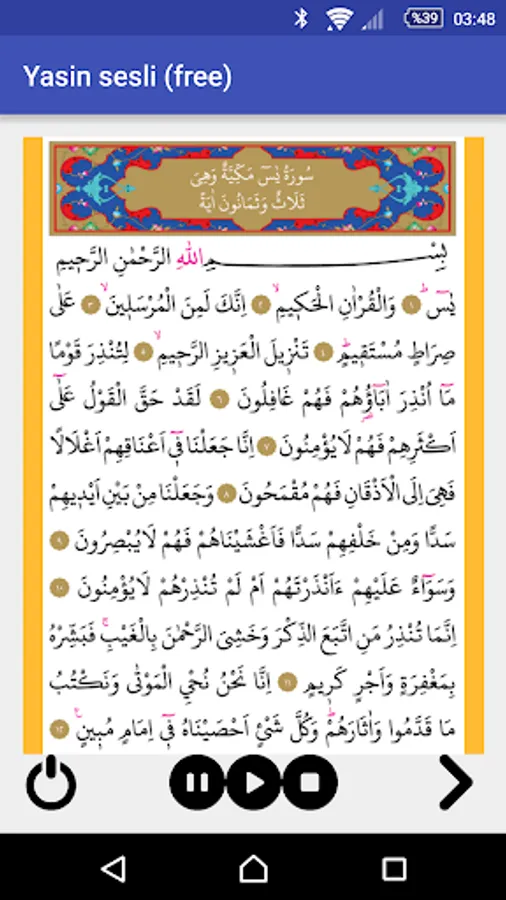 %39 03:48
Yasin sesli (free)
سُورَةُ يٰسٓ مَكِّيَّةٌ وَهِىَ
ثَلَاثٌ وَثَمَانُونَ اٰيَةً
بِسْمِ اللهِ الرَّحْمٰنِ الرَّحٖيمِ
يٰسٓ ۚ ﴿١﴾ وَالْقُرْاٰنِ الْحَكٖيمِ ۙ ﴿٢﴾ اِنَّكَ لَمِنَ الْمُرْسَلٖينَ ۙ ﴿٣﴾ عَلٰى
صِرَاطٍ مُسْتَقٖيمٍ ۜ ﴿٤﴾ تَنْزٖيلَ الْعَزٖيزِ الرَّحٖيمِ ۙ ﴿٥﴾ لِتُنْذِرَ قَوْمًا
مَٓا اُنْذِرَ اٰبَٓاؤُ۬هُمْ فَهُمْ غَافِلُونَ ﴿٦﴾ لَقَدْ حَقَّ الْقَوْلُ عَلٰٓى
اَكْثَرِهِمْ فَهُمْ لَا يُؤْمِنُونَ ﴿٧﴾ اِنَّا جَعَلْنَا فٖٓى اَعْنَاقِهِمْ اَغْلَالًا
فَهِىَ اِلَى الْاَذْقَانِ فَهُمْ مُقْمَحُونَ ﴿٨﴾ وَجَعَلْنَا مِنْ بَيْنِ اَيْدٖيهِمْ
سَدًّا وَمِنْ خَلْفِهِمْ سَدًّا فَاَغْشَيْنَاهُمْ فَهُمْ لَا يُبْصِرُونَ ﴿٩﴾
وَسَوَٓاءٌ عَلَيْهِمْ ءَاَنْذَرْتَهُمْ اَمْ لَمْ تُنْذِرْهُمْ لَا يُؤْمِنُونَ ﴿١٠﴾
اِنَّمَا تُنْذِرُ مَنِ اتَّبَعَ الذِّكْرَ وَخَشِىَ الرَّحْمٰنَ بِالْغَيْبِ ۚ فَبَشِّرْهُ
بِمَغْفِرَةٍ وَاَجْرٍ كَرٖيمٍ ﴿١١﴾ اِنَّا نَحْنُ نُحْيِ الْمَوْتٰى وَنَكْتُبُ
مَا قَدَّمُوا وَاٰثَارَهُمْ ۜ وَكُلَّ شَىْءٍ اَحْصَيْنَاهُ فٖٓى اِمَامٍ مُبٖينٍ ۟ ﴿١٢﴾